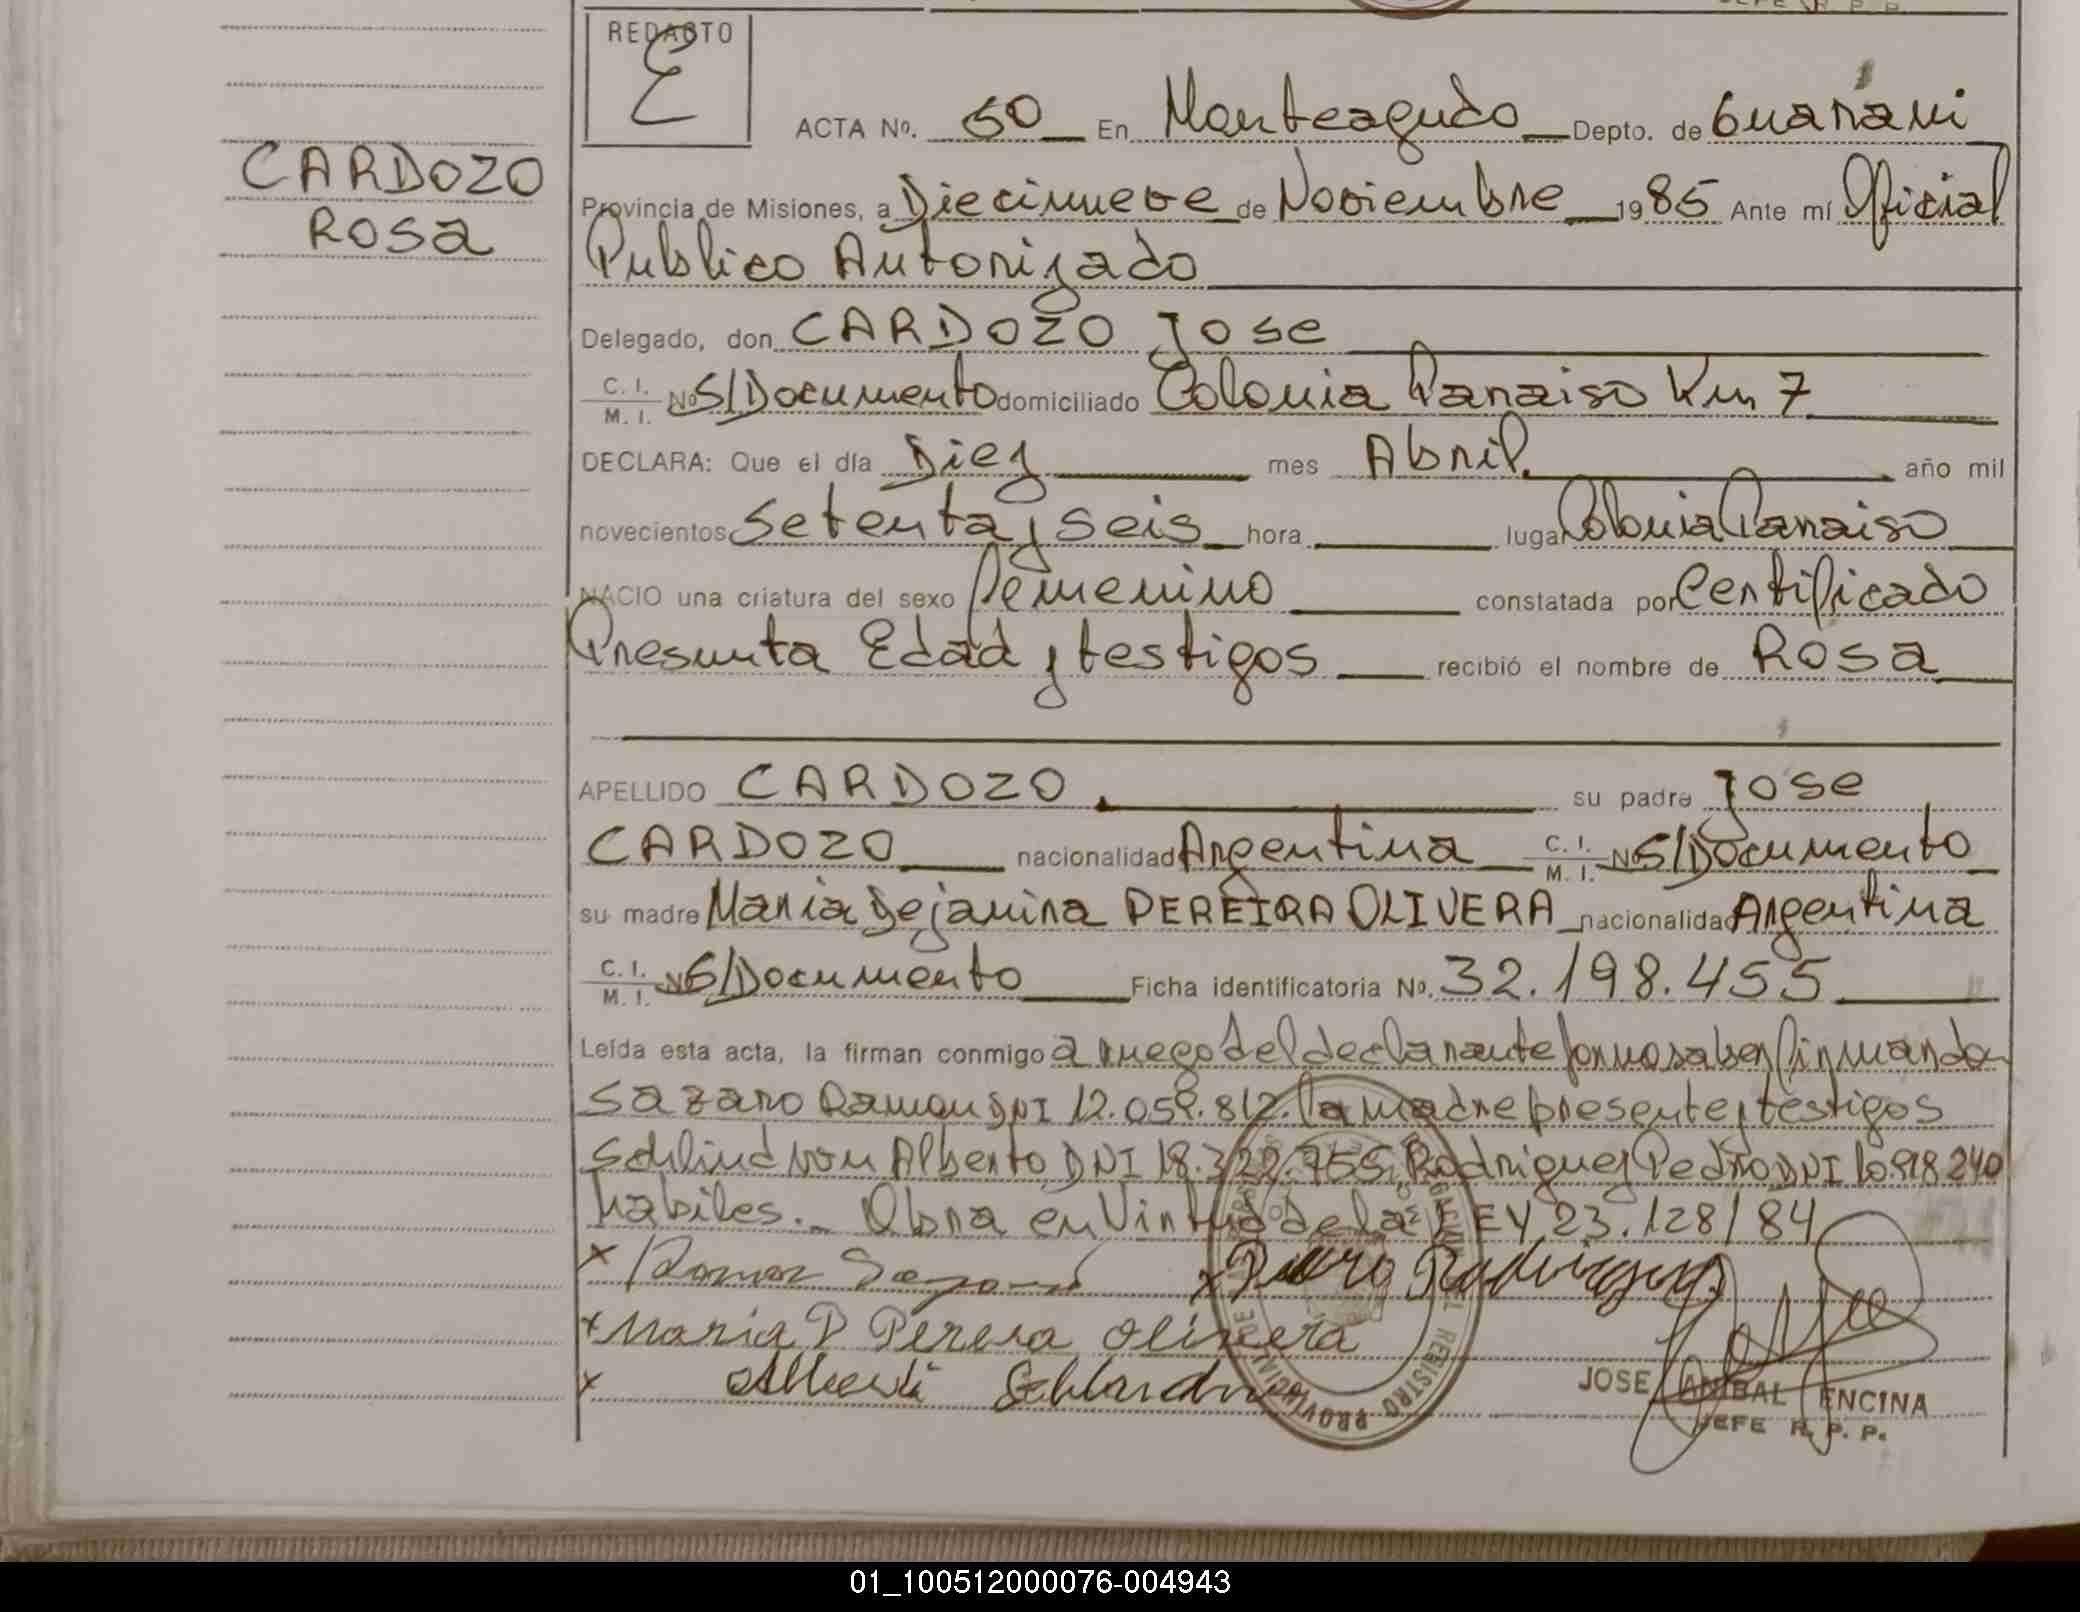 JEFE R. P. P.
REDACTO
E
ACTA No. 50 En Monteagudo Depto. de Guarani
CARDOZO
ROSA
Provincia de Misiones, a Diecinueve de Noviembre 1985 Ante mí Oficial
Publico Autorizado
Delegado, don CARDOZO Jose
C. I. / M. I. No S/Documento domiciliado Colonia Paraiso Km 7
DECLARA: Que el día Diez mes Abril. año mil
novecientos Setenta y seis hora lugar Colonia Paraiso
NACIO una criatura del sexo femenino constatada por Certificado
Presunta Edad y testigos recibió el nombre de Rosa
APELLIDO CARDOZO su padre Jose
CARDOZO nacionalidad Argentina C. I. / M. I. No S/Documento
su madre Maria Dejanira PEREIRA OLIVERA nacionalidad Argentina
C. I. / M. I. No S/Documento Ficha identificatoria No. 32.198.455
Leída esta acta, la firman conmigo a ruego del declarante por no saber firmar don
Sazaro Ramon DNI 12.059.812. la madre presente y testigos
Alberto DNI 18.322.755, Rodriguez Pedro DNI 10.918 240
habiles.- Obra en Virtud de la LEY 23.128/84
x Ramon x Pedro Rodriguez
x Maria D Pereira Olivera
x
JOSE ANIBAL ENCINA
JEFE R. P. P.
PROVINCIAL REGISTRO
01_100512000076-004943